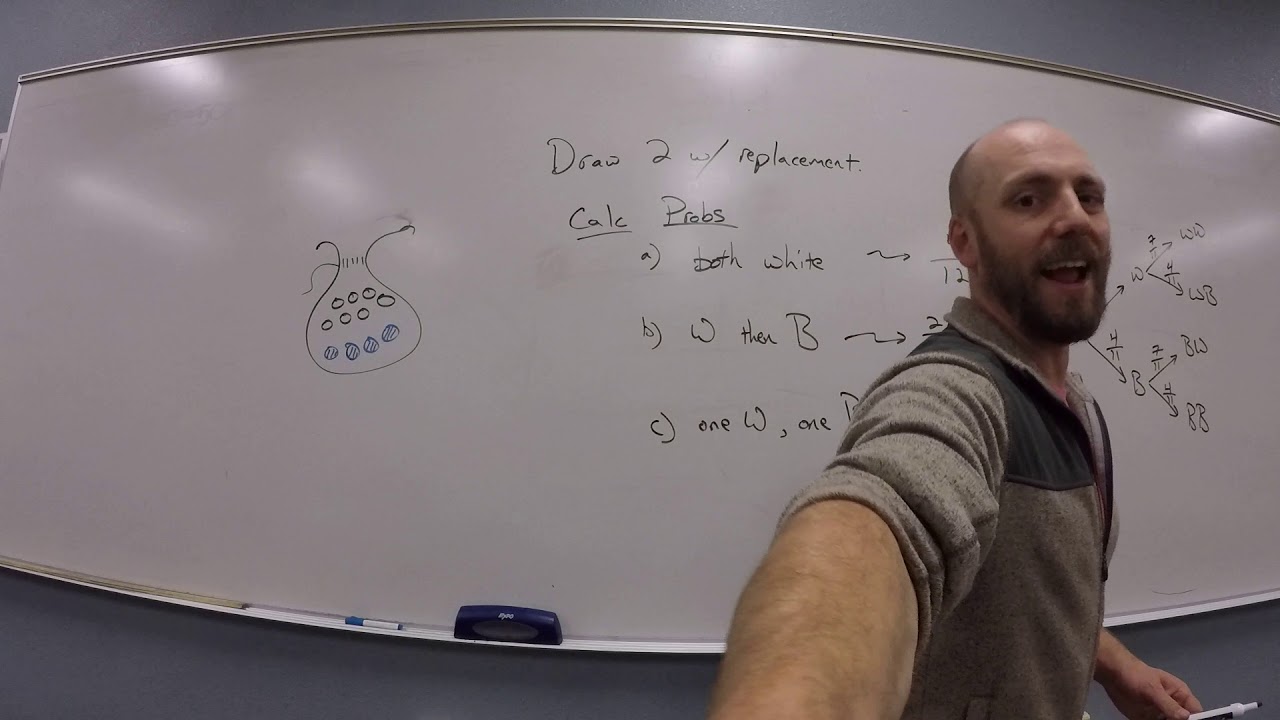 Draw 2 w/ replacement.
Calc Probs
a) both white
12
b) W then B
2
c) one W, one
7 WW
W 4/11 WB
4/11 7/11 BW
B 4/11 BB
EXPO